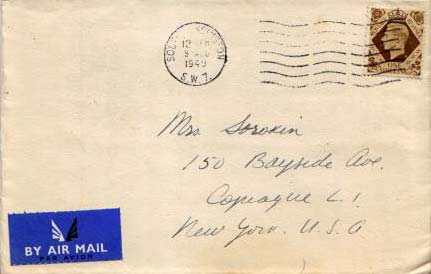 SOUTH KENSINGTON
12
9 AUG
1949
S.W.7.
ONE
SHILLING
Mrs Sorokin
150 Bayside Ave.
Copiague L.I.
New York. U.S.A
BY AIR MAIL
PAR AVION